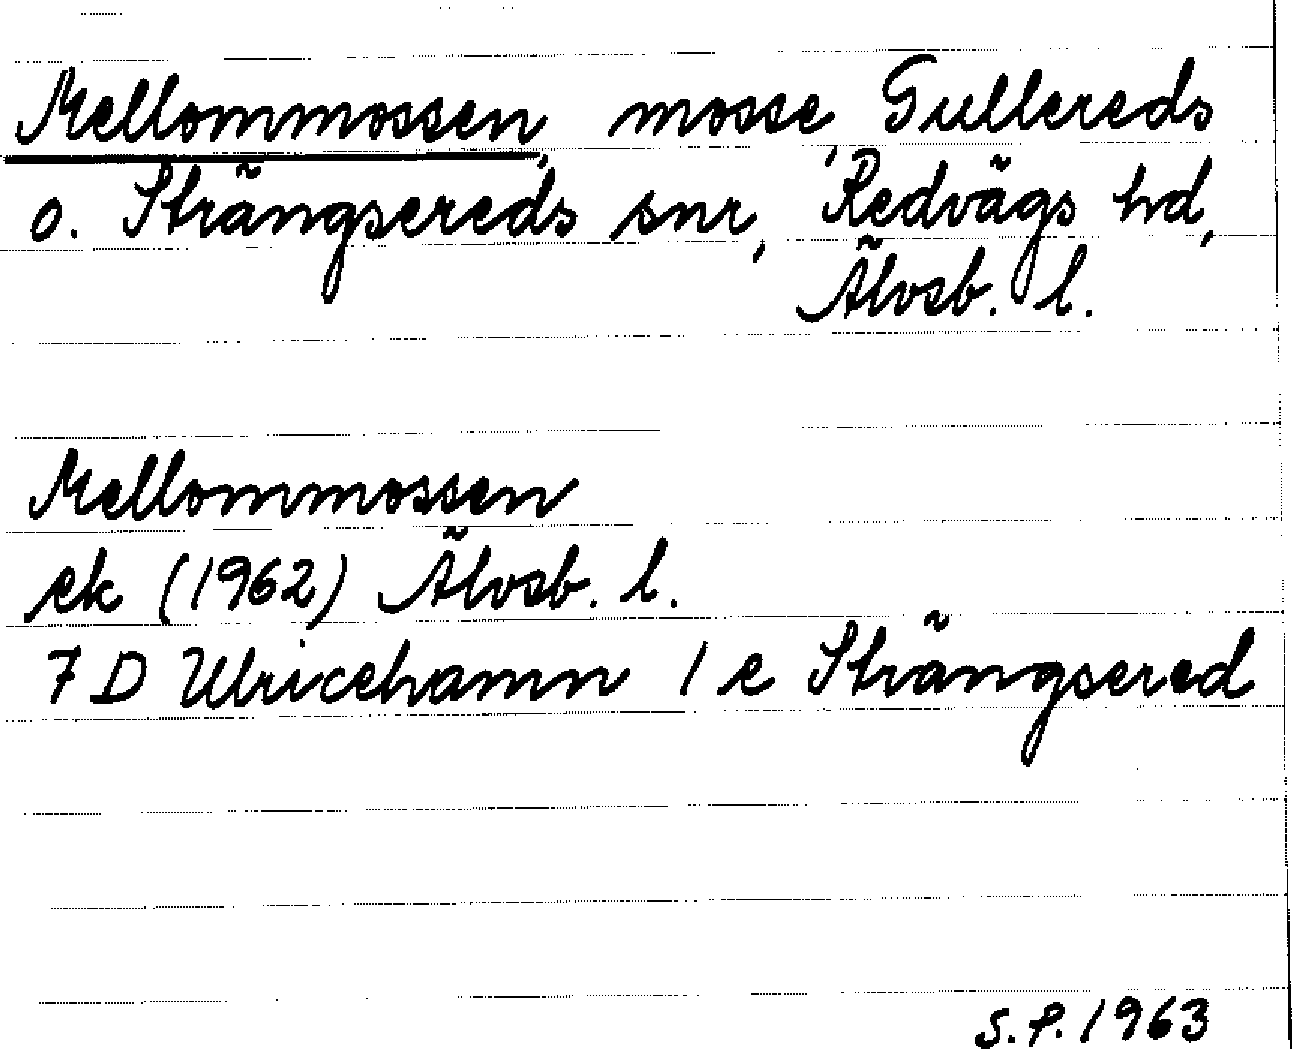 Mellommossen, mosse, Gullereds
o. Strängsereds snr, Redvägs hd,
Älvsb. l.
Mellommossen
ek (1962) Älvsb. l.
7 D Ulricehamn 1 e Strängsered
S.P. 1963